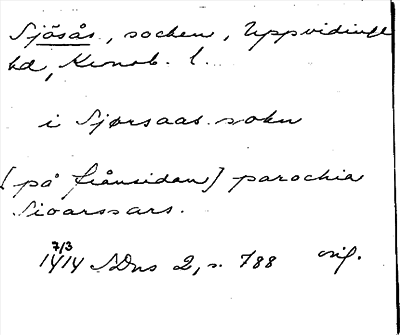 Sjösås, socken, Uppvidinge
hd, Kronob. l.
i Sjørsaas sokn
[på frånsidan] parochia
Sioarsars.
7/3
1414 SDns 2, s. 788 orig.